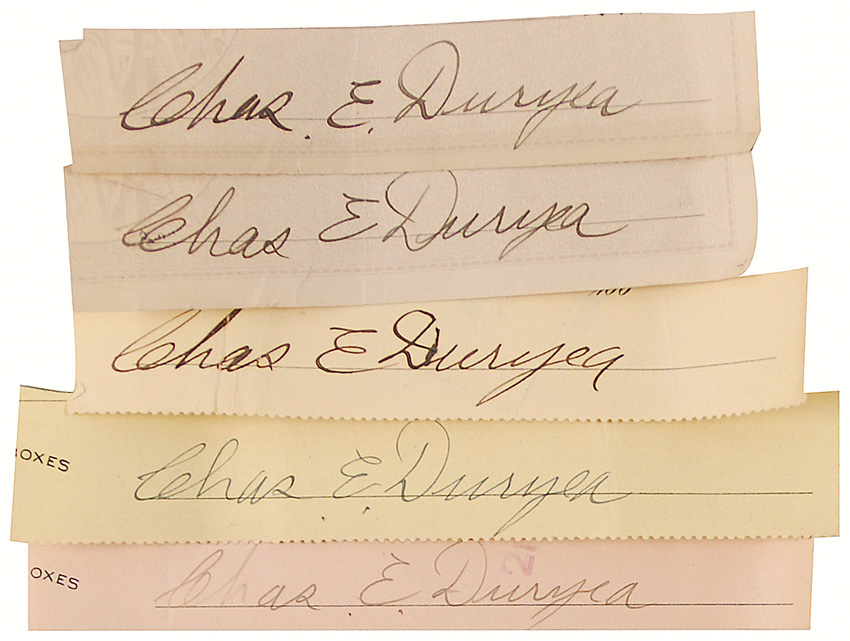 Chas. E. Duryea
Chas E Duryea
/100
Chas E Duryea
OXES
Chas. E. Duryea
OXES
Chas. E. Duryea